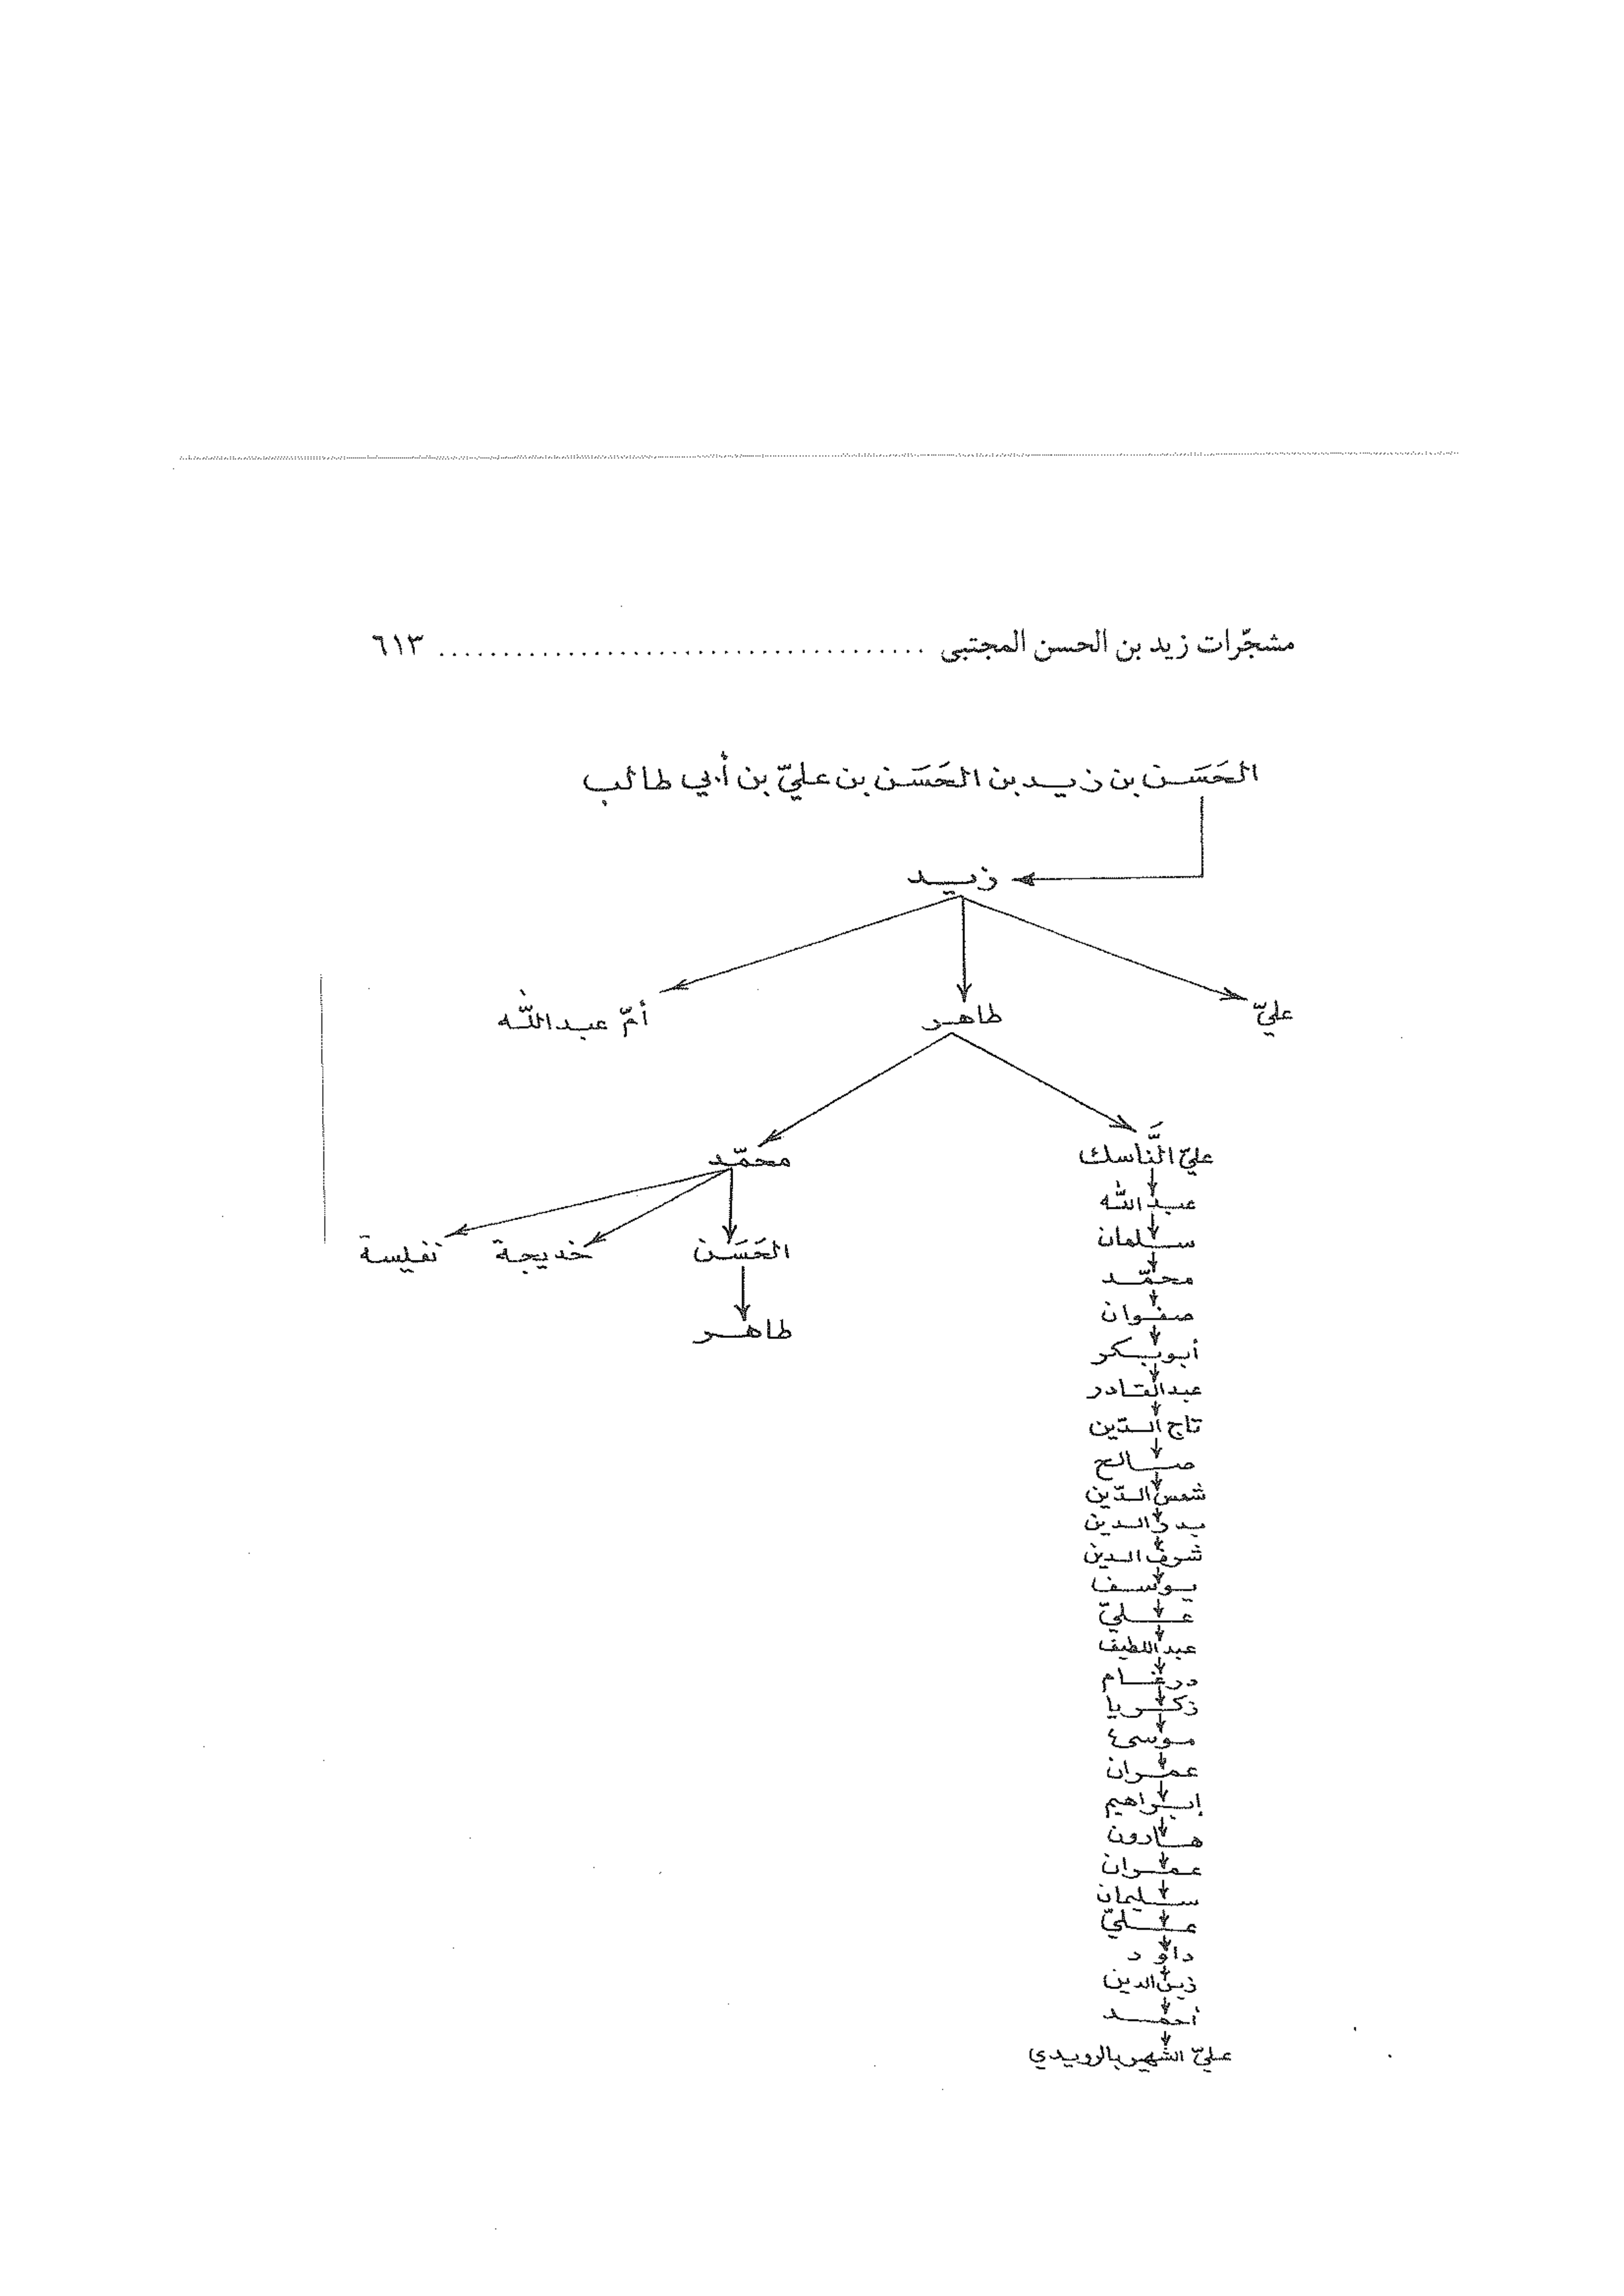 مشجّرات زيد بن الحسن المجتبى ..................................... ٦١٣
الحَسَن بن زيد بن الحَسَن بن عليّ بن أبي طالب
زيد
عليّ طاهر أمّ عبدالله
عليّ النَّاسك محمّد
عبدالله
سلمان
الحَسَن خديجة نفيسة
محمّد
صفوان
طاهر
أبوبكر
عبدالقادر
تاج الدّين
صالح
شمس الدّين
بدرالدين
شرف الدين
يوسف
عليّ
عبداللطيف
درغام
زكريا
موسى
عمران
إبراهيم
هارون
عمران
سليمان
عليّ
داود
زين الدين
أحمد
عليّ الشهير بالرويدي